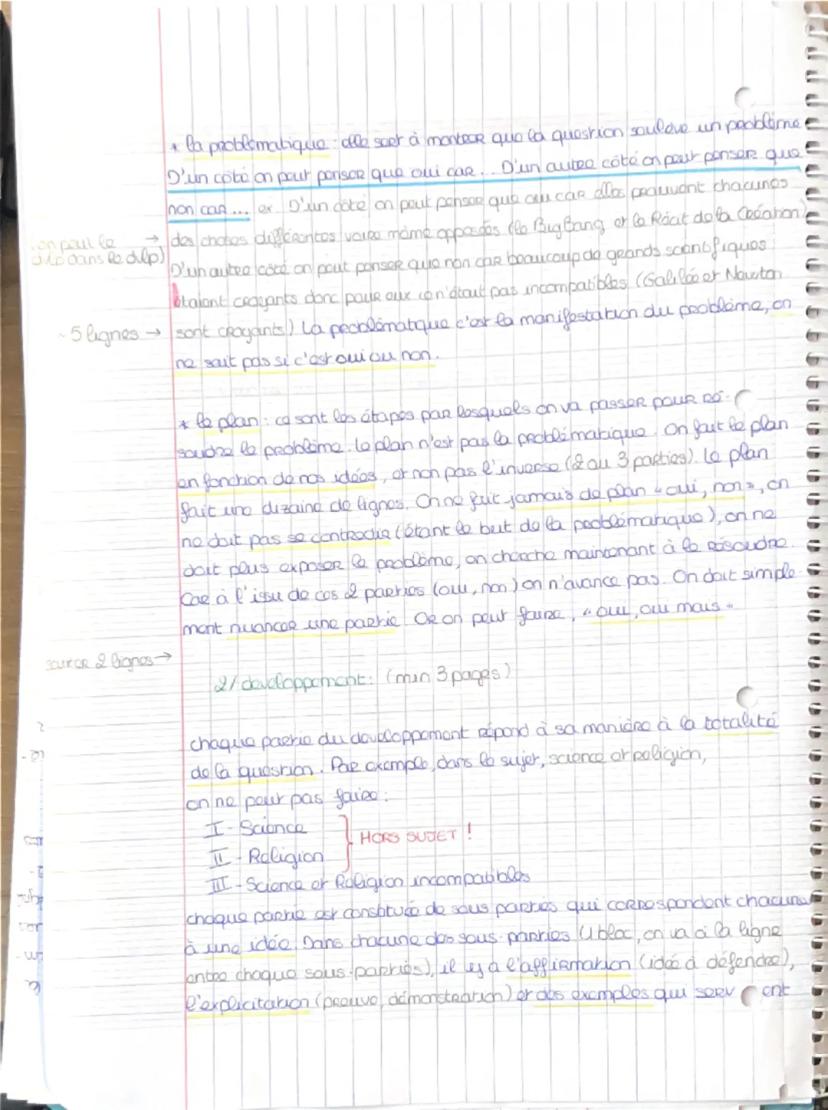 * la problématique : elle sert à montrer que la question soulève un problème
D'un côté on peut penser que oui car ... D'un autre côté on peut penser que
non car ... ex D'un côté on peut penser que oui car elles prouvent chacunes
des choses différentes voire même opposées (le Big Bang et le Récit de la Création)
on peut le → dans le dvlp)
D'un autre côté on peut penser que non car beaucoup de grands scientifiques
étaient croyants donc pour eux ce n'était pas incompatibles (Galilée et Newton
~ 5 lignes → sont croyants) La problématique c'est la manifestation du problème, on
ne sait pas si c'est oui ou non.
* le plan : ce sont les étapes par lesquels on va passer pour ré-
soudre le problème. Le plan n'est pas la problématique. On fait le plan
en fonction de nos idées, et non pas l'inverse (2 ou 3 parties). Le plan
fait une dizaine de lignes. On ne fait jamais de plan « oui, non », on
ne doit pas se contredire (étant le but de la problématique), on ne
doit plus exposer le problème, on cherche maintenant à le résoudre.
Car à l'issu de ces 2 parties (oui, non) on n'avance pas. On doit simple-
ment nuancer une partie. Or on peut faire, « oui, oui mais »
sauter 2 lignes →
2/ développement : (min 3 pages)
chaque partie du développement répond à sa manière à la totalité
de la question. Par exemple, dans le sujet, science et religion,
on ne peut pas faire :
I - Science
II - Religion
HORS SUJET !
III - Science et Religion incompatibles
chaque partie est constituée de sous parties qui correspondent chacune
à une idée. Dans chacune des sous-parties (1 bloc, on va à la ligne
entre chaque sous-parties), il y a l'affirmation (idée à défendre),
l'explicitation (preuve, démonstration) et des exemples qui serv ent